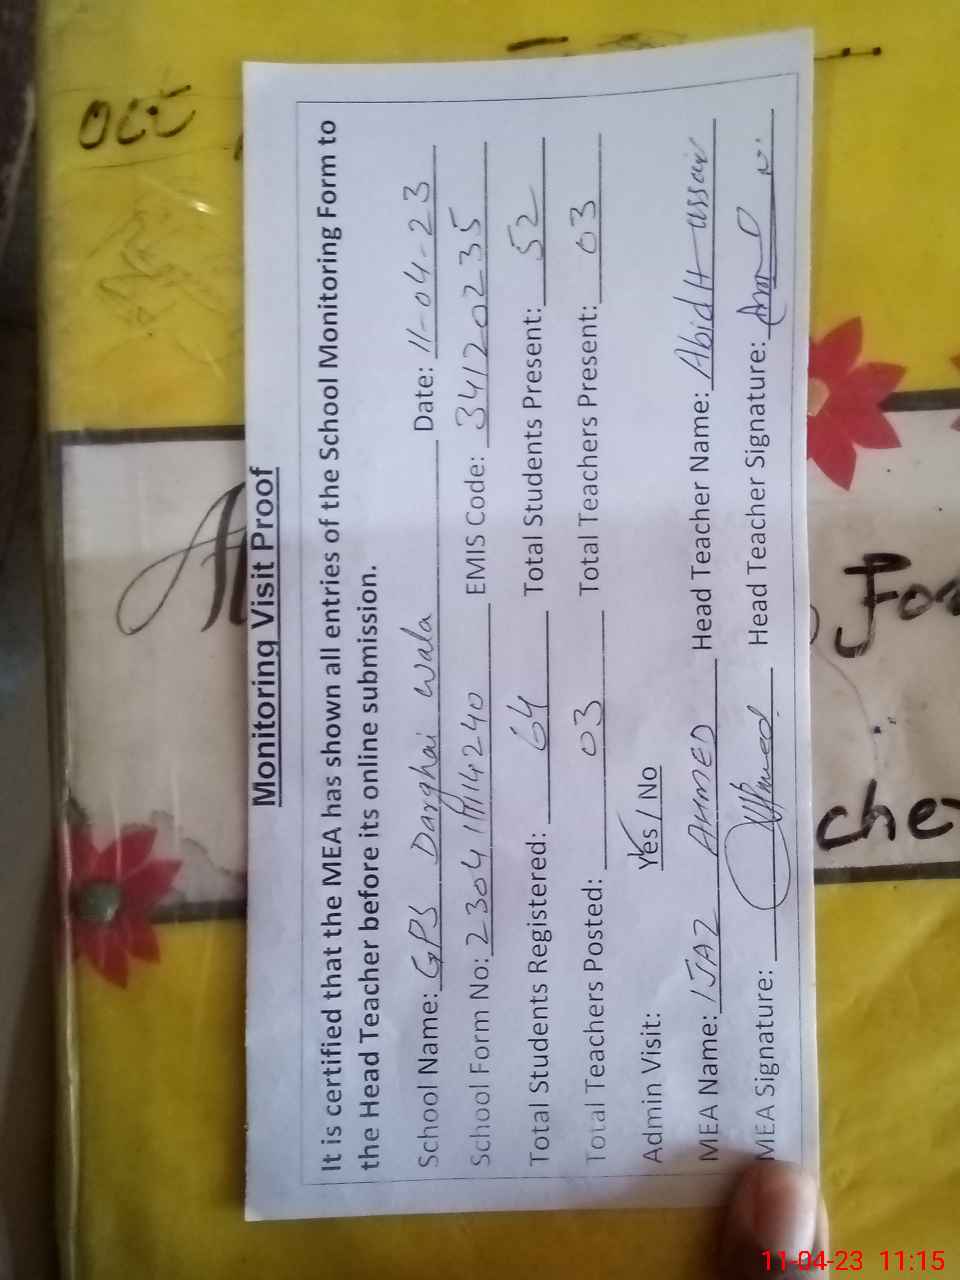 Monitoring Visit Proof
It is certified that the MEA has shown all entries of the School Monitoring Form to
the Head Teacher before its online submission.
School Name: GPS Darghai Wala Date: 11-04-23
School Form No: EMIS Code: 34120235
Total Students Registered: 64 Total Students Present: 52
Total Teachers Posted: 03 Total Teachers Present: 03
Admin Visit: Yes / No
MEA Name: IJAZ AHMED Head Teacher Name: Abid Hussain
MEA Signature: Head Teacher Signature:
che
11-04-23 11:15